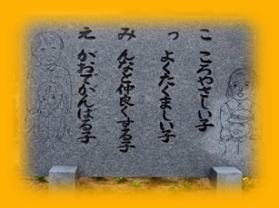 こ ころやさしい子
っ よくたくましい子
み んなと仲良くする子
え がおでがんばる子